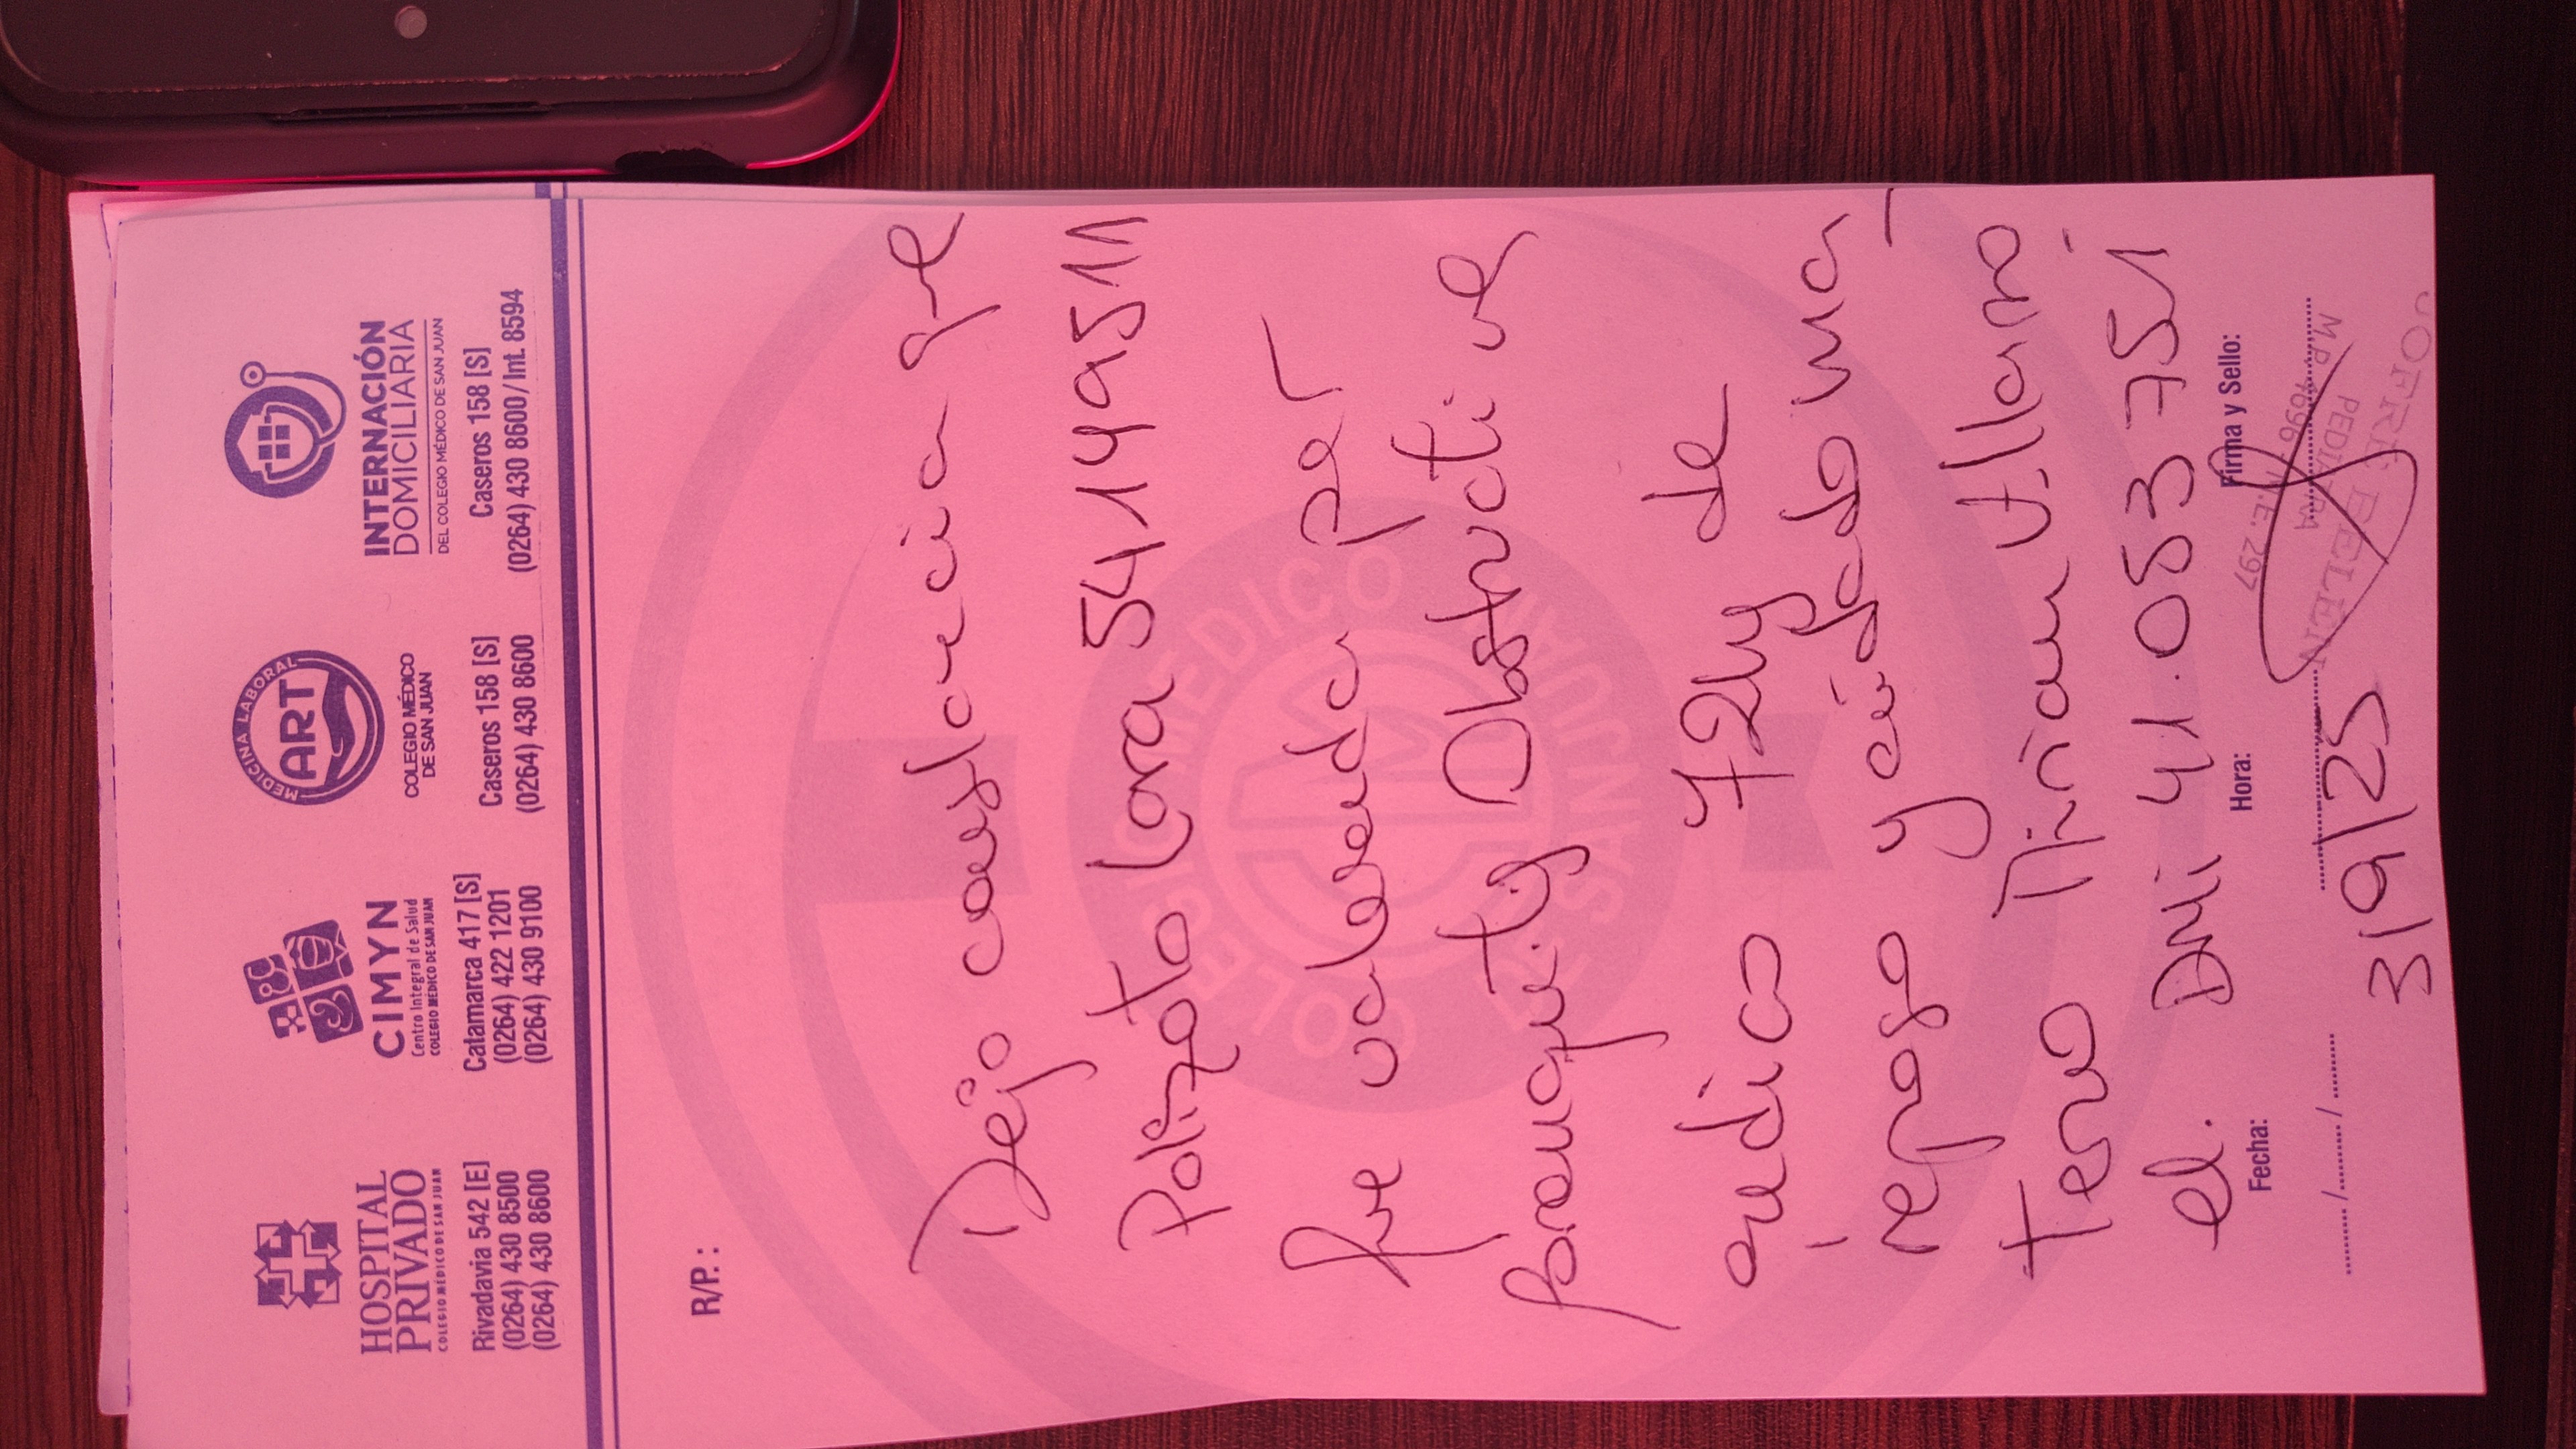 HOSPITAL
PRIVADO
COLEGIO MÉDICO DE SAN JUAN
Rivadavia 542 [E]
(0264) 430 8500
(0264) 430 8600
CIMYN
Centro Integral de Salud
COLEGIO MÉDICO DE SAN JUAN
Catamarca 417 [S]
(0264) 422 1201
(0264) 430 9100
MEDICINA LABORAL
ART
COLEGIO MÉDICO
DE SAN JUAN
Caseros 158 [S]
(0264) 430 8600
INTERNACIÓN
DOMICILIARIA
DEL COLEGIO MÉDICO DE SAN JUAN
Caseros 158 [S]
(0264) 430 8600 / Int. 8594
R/P.:
COLEGIO MEDICO
DE SAN JUAN
Dejo constancia que
Polizzoto Lara 54149511
fue valorada por
Bronquitis Obstructiva
indico 72hs de
reposo y cuidado ma-
terno
el. DNI 41.053751
Fecha:
Hora:
Firma y Sello:
3/9/25
BELEN
PEDIATRA
M.E. 297